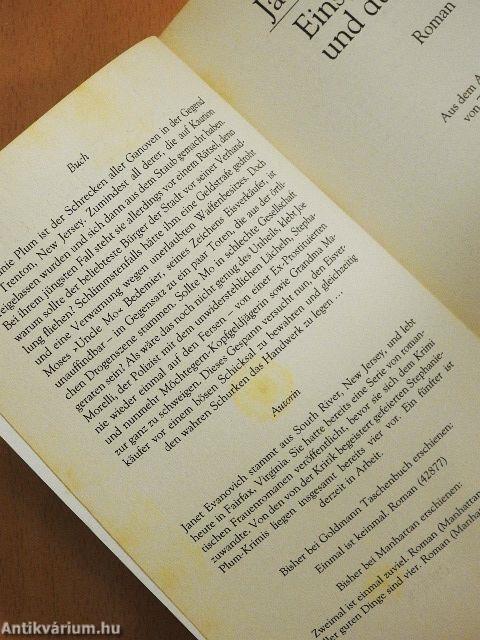 Buch
nie Plum ist der Schrecken aller Ganoven in der Gegend
Trenton, New Jersey. Zumindest all derer, die auf Kaution
eigelassen wurden und sich dann aus dem Staub gemacht haben.
Bei ihrem jüngsten Fall steht sie allerdings vor einem Rätsel, denn
warum sollte der beliebteste Bürger der Stadt vor seiner Verhand-
lung fliehen? Schlimmstenfalls hätte ihm eine Geldstrafe gedroht
und eine Verwarnung wegen unerlaubten Waffenbesitzes. Doch
Moses »Uncle Mo« Bedemier, seines Zeichens Eisverkäufer, ist
unauffindbar – im Gegensatz zu ein paar Toten, die aus der örtli-
chen Drogenszene stammen. Sollte Mo in schlechte Gesellschaft
geraten sein? Als wäre das noch nicht genug des Unheils, klebt Joe
Morelli, der Polizist mit dem unwiderstehlichen Lächeln, Stepha-
nie wieder einmal auf den Fersen – von einer Ex-Prostituierten
und nunmehr Möchtegern-Kopfgeldjägerin sowie Grandma Ma-
zur ganz zu schweigen. Dieses Gespann versucht nun, den Eisver-
käufer vor einem bösen Schicksal zu bewahren und gleichzeitig
den wahren Schurken das Handwerk zu legen ...
Autorin
Janet Evanovich stammt aus South River, New Jersey, und lebt
heute in Fairfax, Virginia. Sie hatte bereits eine Serie von roman-
tischen Frauenromanen veröffentlicht, bevor sie sich dem Krimi
zuwandte. Von den von der Kritik begeistert gefeierten Stephanie-
Plum-Krimis liegen insgesamt bereits vier vor. Ein fünfter ist
derzeit in Arbeit.
Bisher bei Goldmann Taschenbuch erschienen:
Einmal ist keinmal. Roman (42877)
Bisher bei Manhattan erschienen:
Zweimal ist einmal zuviel. Roman (Manhattan
aller guten Dinge sind vier. Roman (Manhat
Ja
Eins
und d
Roman
Aus dem A
von
Antikvárium.hu